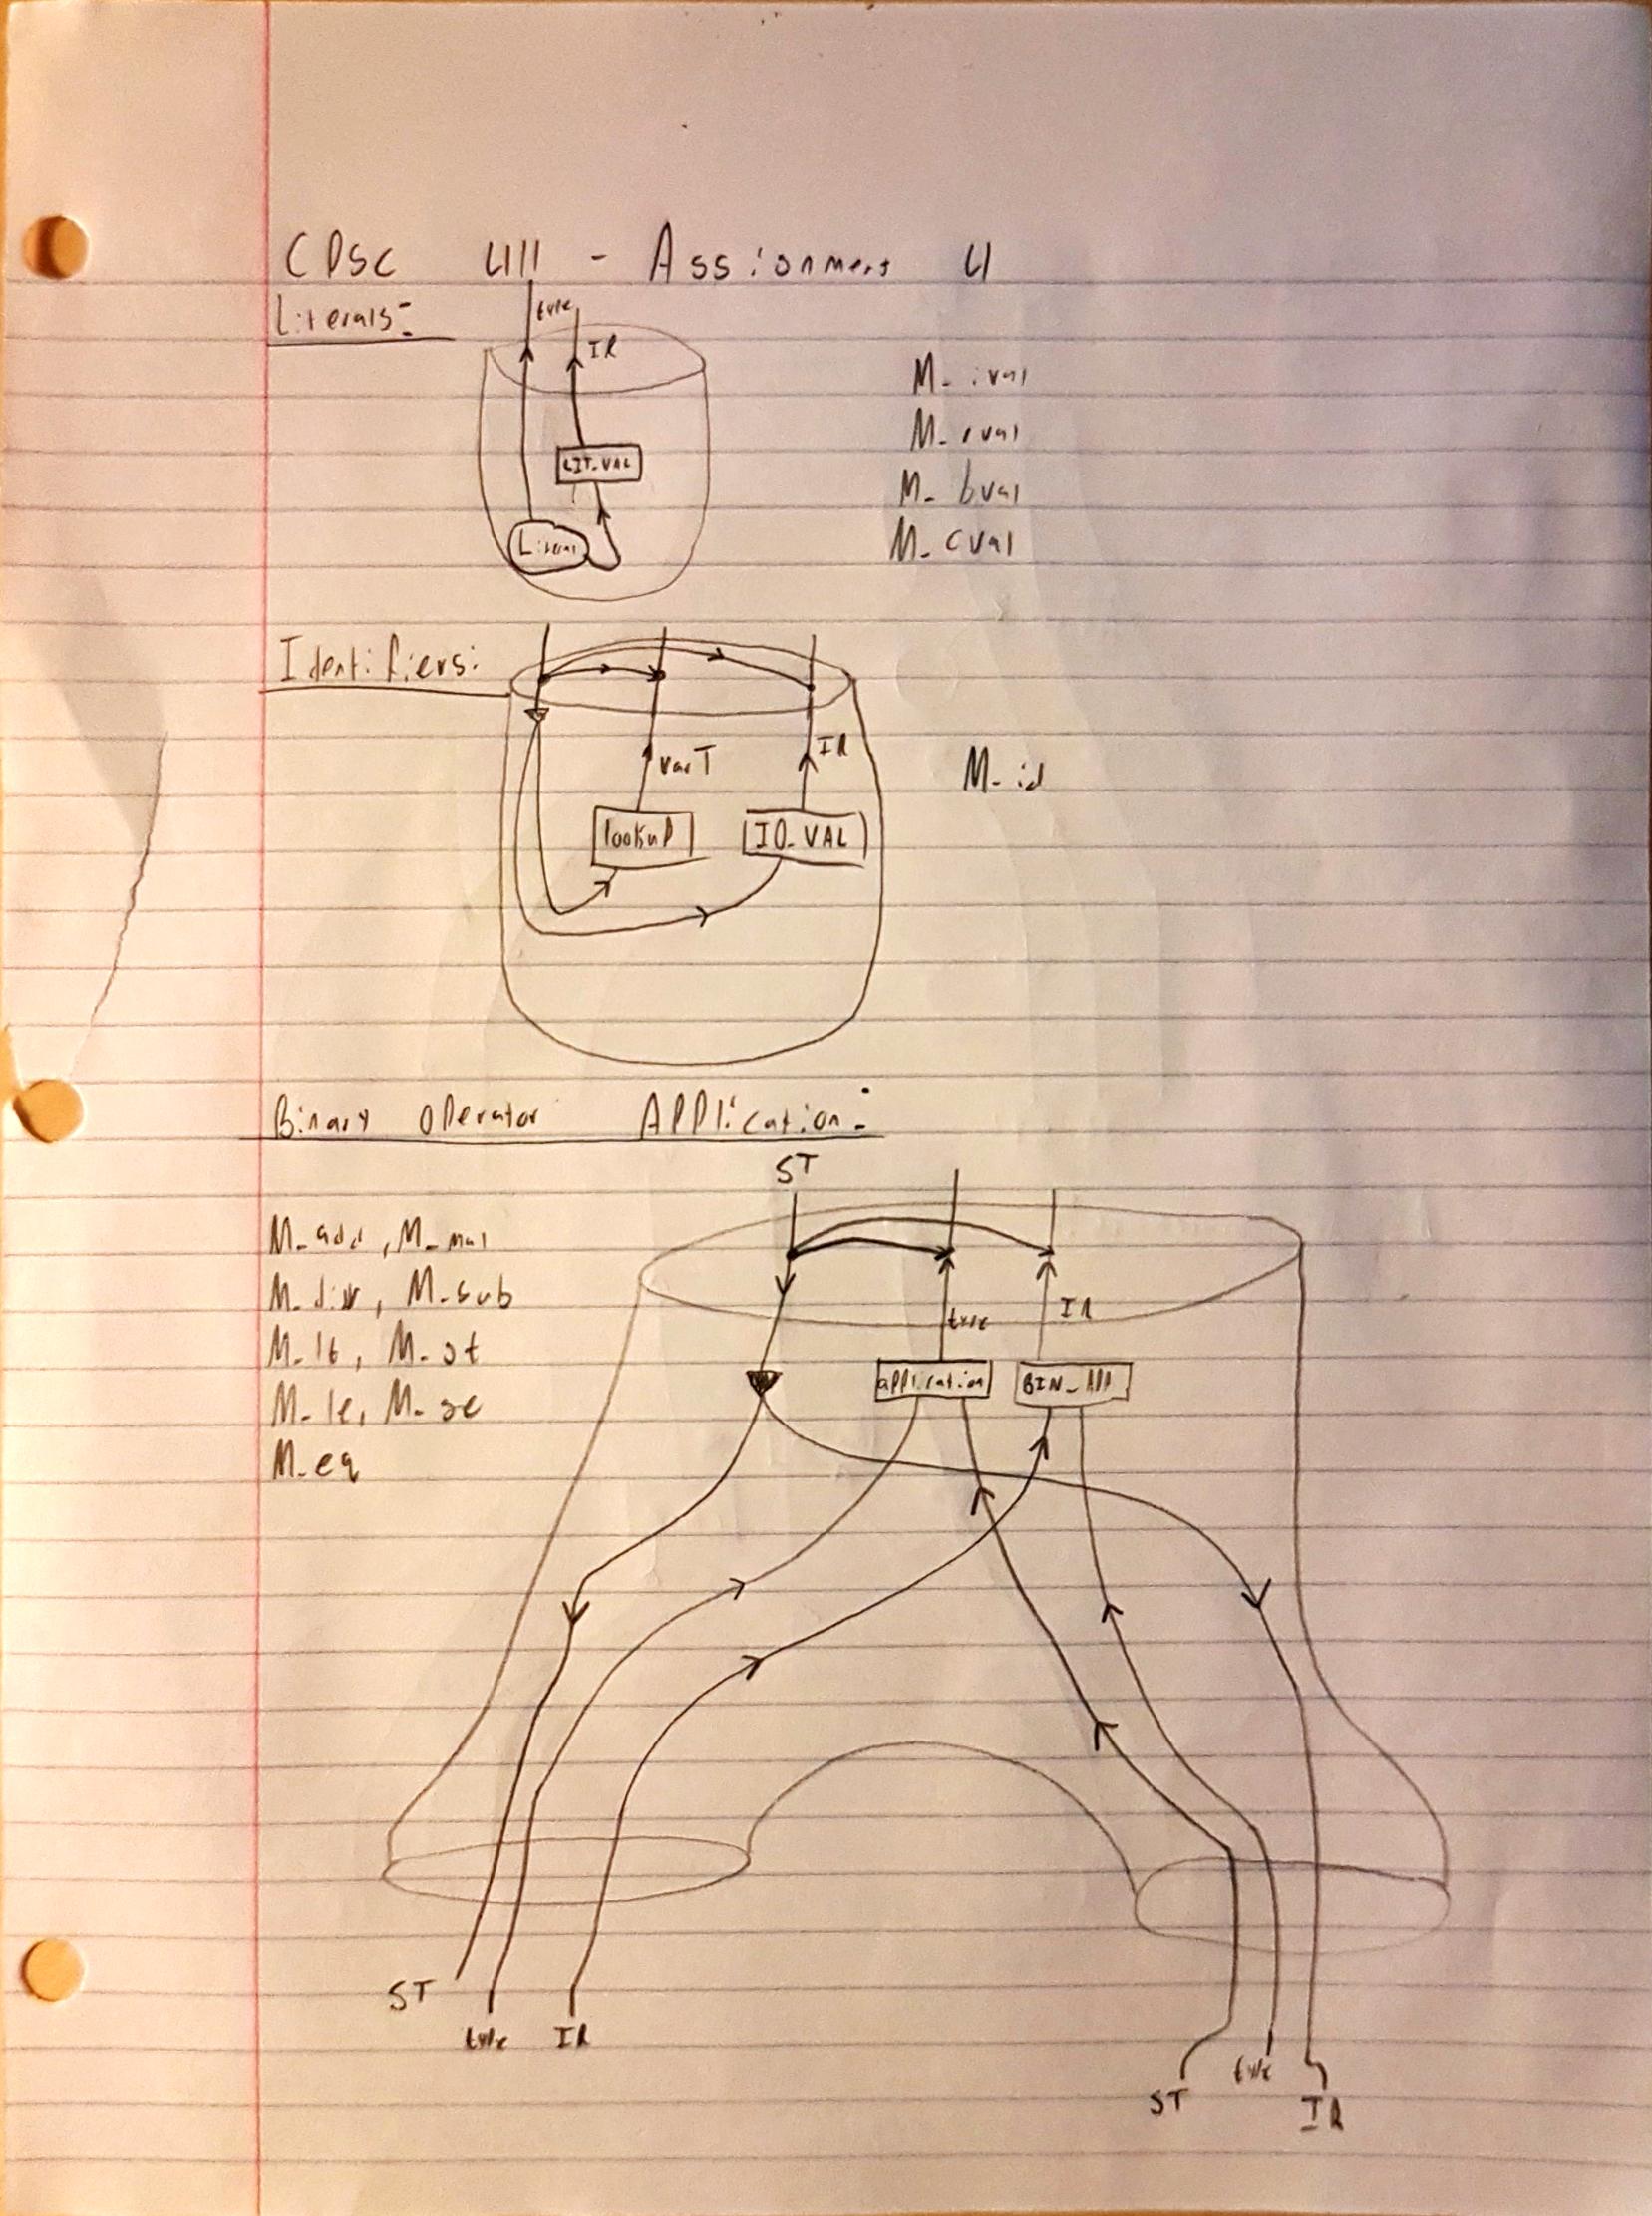 CPSC 411 - Assignment 4
Literals:
type
IR
LIT_VAL
Literal
M_ival
M_rval
M_bval
M_cval
Identifiers:
varT
IR
lookup
ID_VAL
M_id
Binary Operator Application:
ST
M_add, M_mul
M_div, M_sub
M_lt, M_gt
M_le, M_ge
M_eq
type
IR
application
BIN_APP
ST
type
IR
ST
type
IR